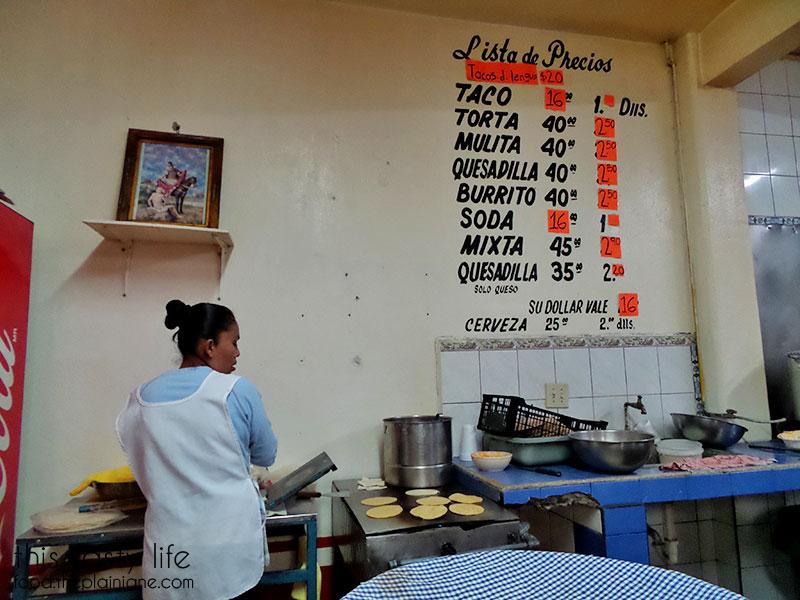 Lista de Precios
Tacos d. lengua $20
TACO 16⁰⁰ 1. Dlls.
TORTA 40⁰⁰ 2⁵⁰
MULITA 40⁰⁰ 2⁵⁰
QUESADILLA 40⁰⁰ 2⁵⁰
BURRITO 40⁰⁰ 2⁵⁰
SODA 16⁰⁰ 1
MIXTA 45⁰⁰ 2⁹⁰
QUESADILLA 35⁰⁰ 2.²⁰
SOLO QUESO
SU DOLLAR VALE 16
CERVEZA 25⁰⁰ 2.⁰⁰ dlls.
this tasty life
food.theplainjane.com